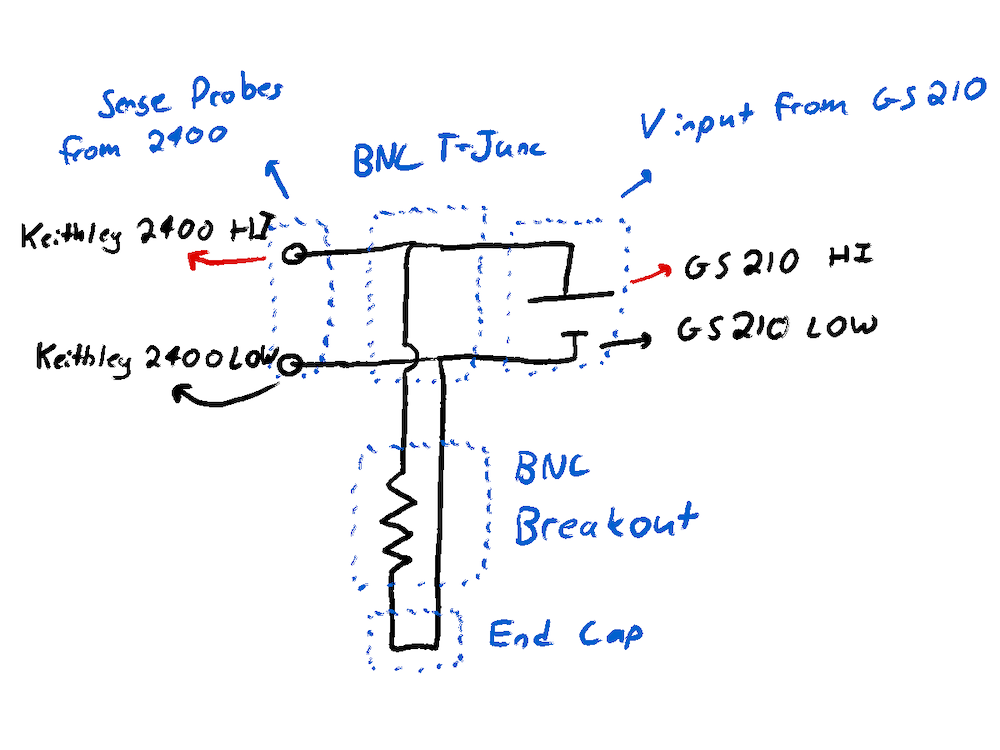 Sense Probes
from 2400
BNC T-Junc
V input from GS210
Keithley 2400 HI
GS210 HI
Keithley 2400 LOW
GS210 LOW
BNC
Breakout
End Cap